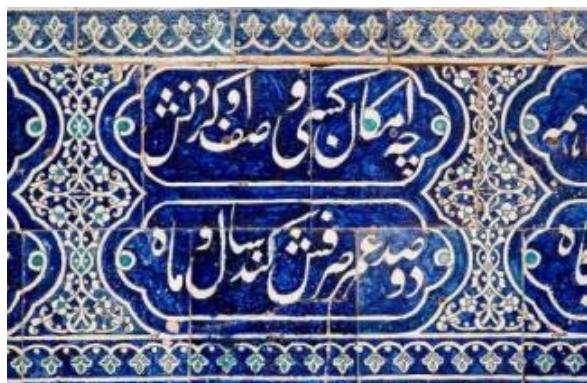 چه امکان کسی وصف او کردنش
دو صد عمر صرفش کند سال و ماه